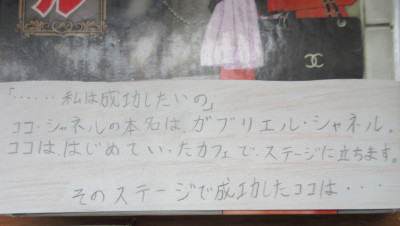 「‥‥‥私は成功したいの」
ココ・シャネルの本名は、ガブリエル・シャネル。
ココは、はじめてい、たカフェで、ステージに立ちます。
そのステージで成功したココは・・・